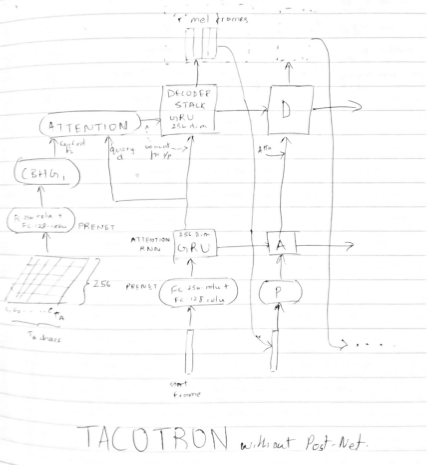 "r" mel frames
DECODER
STACK
GRU
256 dim
D
ATTENTION
query
Attn
CBHG
FC 256-relu +
FC 128-relu
PRENET
256
ATTENTION
RNN
256 dim
GRU
A
PRENET
FC 256-relu +
FC 128-relu
P
start
frame
TACOTRON without Post-Net.